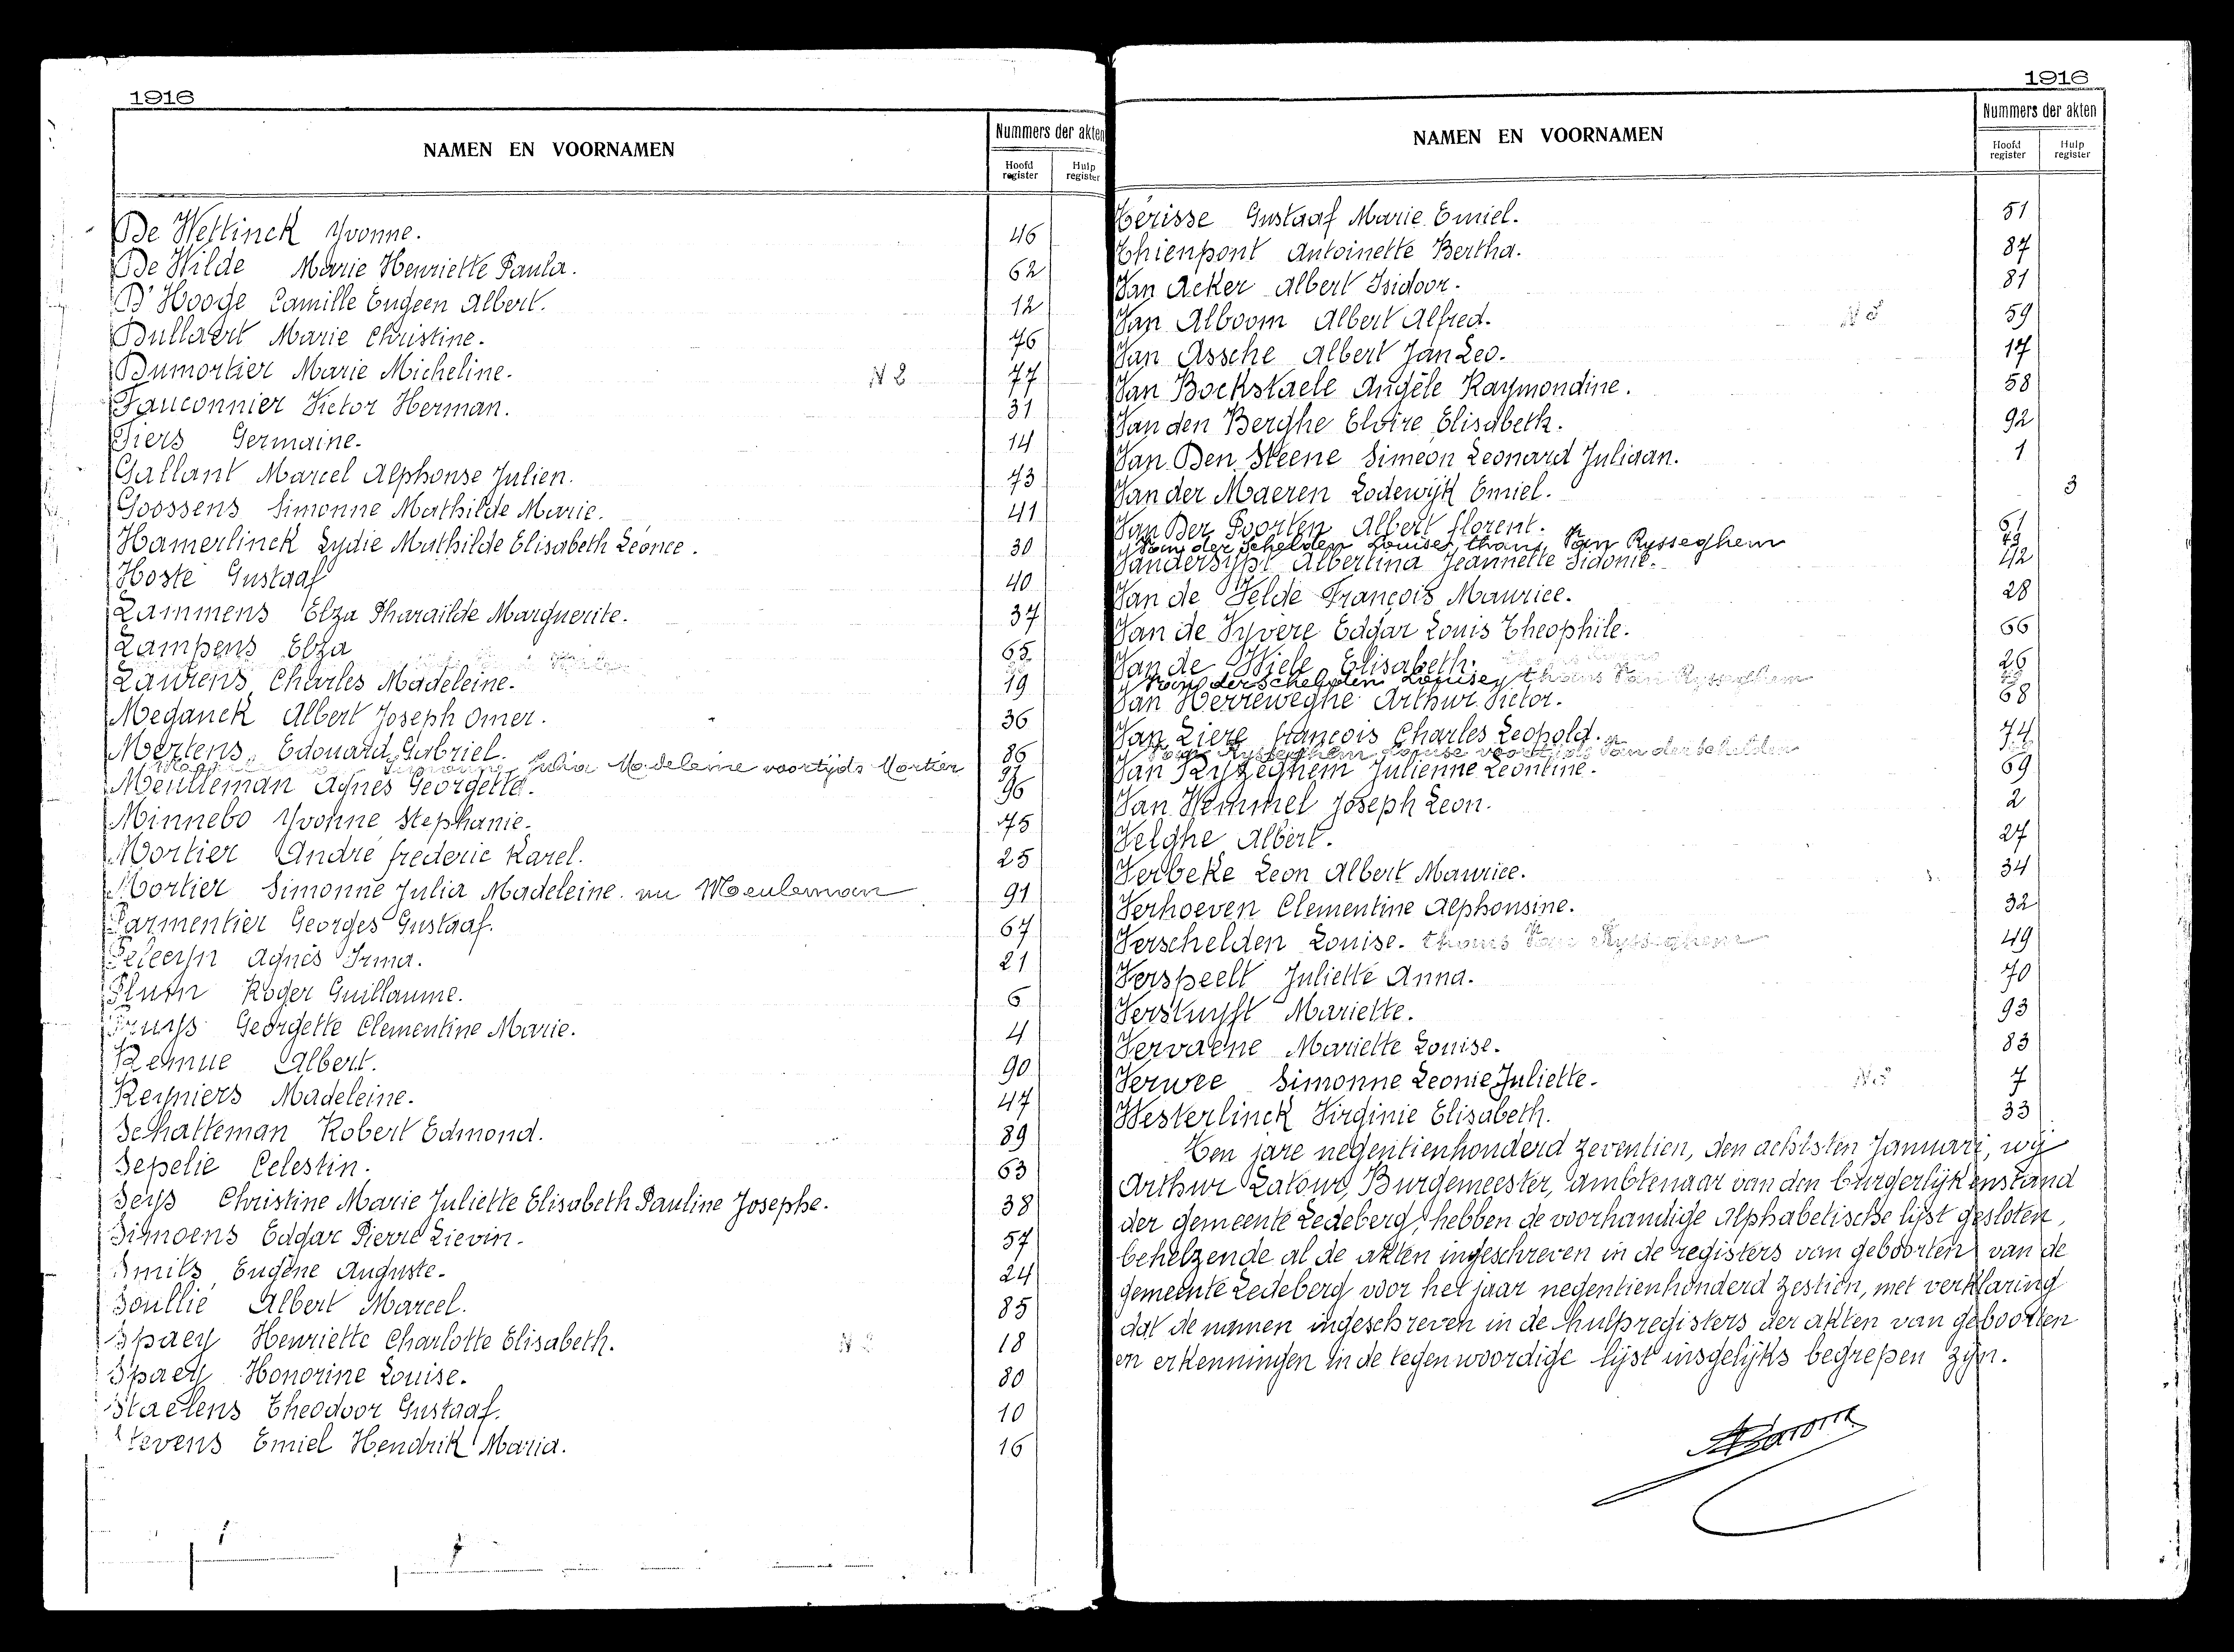 1916
NAMEN EN VOORNAMEN
Nummers der akten
Hoofd register
Hulp register
De Wettinck Yvonne. 46
De Wilde Marie Henriette Paula. 62
D'Hooge Camille Eugeen Albert. 12
Dullaert Marie Christine. 76
Dumortier Marie Micheline. N 2 77
Fauconnier Victor Herman. 31
Fiers Germaine. 14
Gallant Marcel Alphonse Julien. 73
Goossens Simonne Mathilde Marie. 41
Hamerlinck Lydie Mathilde Elisabeth Léonce. 30
Hoste Gustaaf 40
Lammens Elza Pharaïlde Marguerite. 37
Lampens Elza 65
Laurens Charles Madeleine. 19
Meganck Albert Joseph Omer. 36
Mertens Edouard Gabriel. 86
Simonne Julia Madeleine voortijds Mortier 91
Meulleman Agnes Georgette. 96
Minnebo Yvonne Stephanie. 75
Mortier André frederic Karel. 25
Mortier Simonne Julia Madeleine. nu Meuleman 91
Parmentier Georges Gustaaf. 67
Peleeyn Agnès Irma. 21
Plum Roger Guillaume. 6
Pruys Georgette Clementine Marie. 4
Remue Albert. 90
Reyniers Madeleine. 47
Schatteman Robert Edmond. 89
Sepelie Celestin. 63
Seys Christine Marie Juliette Elisabeth Pauline Josephe. 38
Simoens Edgar Pierre Lievin. 57
Smits Eugène Auguste. 24
Soullié Albert Marcel. 85
Spaey Henriette Charlotte Elisabeth. N 2 18
Spaey Honorine Louise. 80
Staelens Theodoor Gustaaf. 10
Stevens Emiel Hendrik Maria. 16
1916
NAMEN EN VOORNAMEN
Nummers der akten
Hoofd register
Hulp register
Térisse Gustaaf Marie Emiel. 51
Thienpont Antoinette Bertha. 87
Van Acker Albert Isidoor. 81
Van Alboom Albert Alfred. 59
Van Assche Albert Jan Leo. 17
Van Bockstaele Angèle Raymondine. 58
Van den Berghe Elvire Elisabeth. 92
Van Den Steene Siméon Leonard Juliaan. 1
Van der Maeren Lodewijk Emiel. 3
Van Der Poorten Albert florent. 61
Van der Schelden Louise, thans Van Rysseghem
Vandersypt Albertina Jeannette Sidonie. 42
Van de Velde François Maurice. 28
Van de Vyvere Edgar Louis Theophile. 66
Van de Wiele Elisabeth. 26
Van der schelden Louise, thans Van Rysseghem
Van Herreweghe Arthur Victor. 68
Van Liere françois Charles Leopold. 74
Van Rysseghem Louise voortijds Van der schelden
Van Ryzeghem Julienne Leontine. 69
Van Wemmel Joseph Leon. 2
Velghe Albert. 27
Verbeke Leon Albert Maurice. 34
Verhoeven Clementine Alphonsine. 32
Verschelden Louise. thans Van Rysseghem 49
Verspeelt Juliette Anna. 70
Verstuyft Mariette. 93
Vervaene Mariette Louise. 83
Verwee Simonne Leonie Juliette. 7
Westerlinck Virginie Elisabeth. 33
Ten jare negentienhonderd zeventien, den achtsten Januari, wij
Arthur Latour, Burgemeester, ambtenaar van den burgerlijkenstand
der gemeente Ledeberg, hebben de voorhandige Alphabetische lijst gesloten,
behelzende al de akten ingeschreven in de registers van geboorten van de
gemeente Ledeberg voor het jaar negentienhonderd zestien, met verklaring
dat de namen ingeschreven in de hulpregisters der akten van geboorten
en erkenningen in de tegenwoordige lijst insgelijks begrepen zijn.